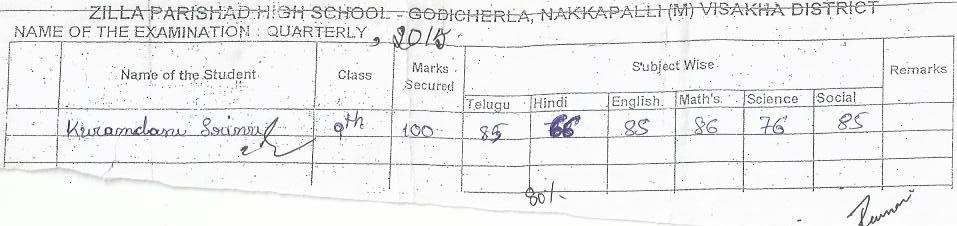 ZILLA PARISHAD HIGH SCHOOL - GODICHERLA, NAKKAPALLI (M) VISAKHA DISTRICT
NAME OF THE EXAMINATION : QUARTERLY, 2015
Name of the Student Class Marks Secured Subject Wise Remarks
Telugu Hindi English. Math's. Science Social
9th 100 85 66 85 86 76 85
80%